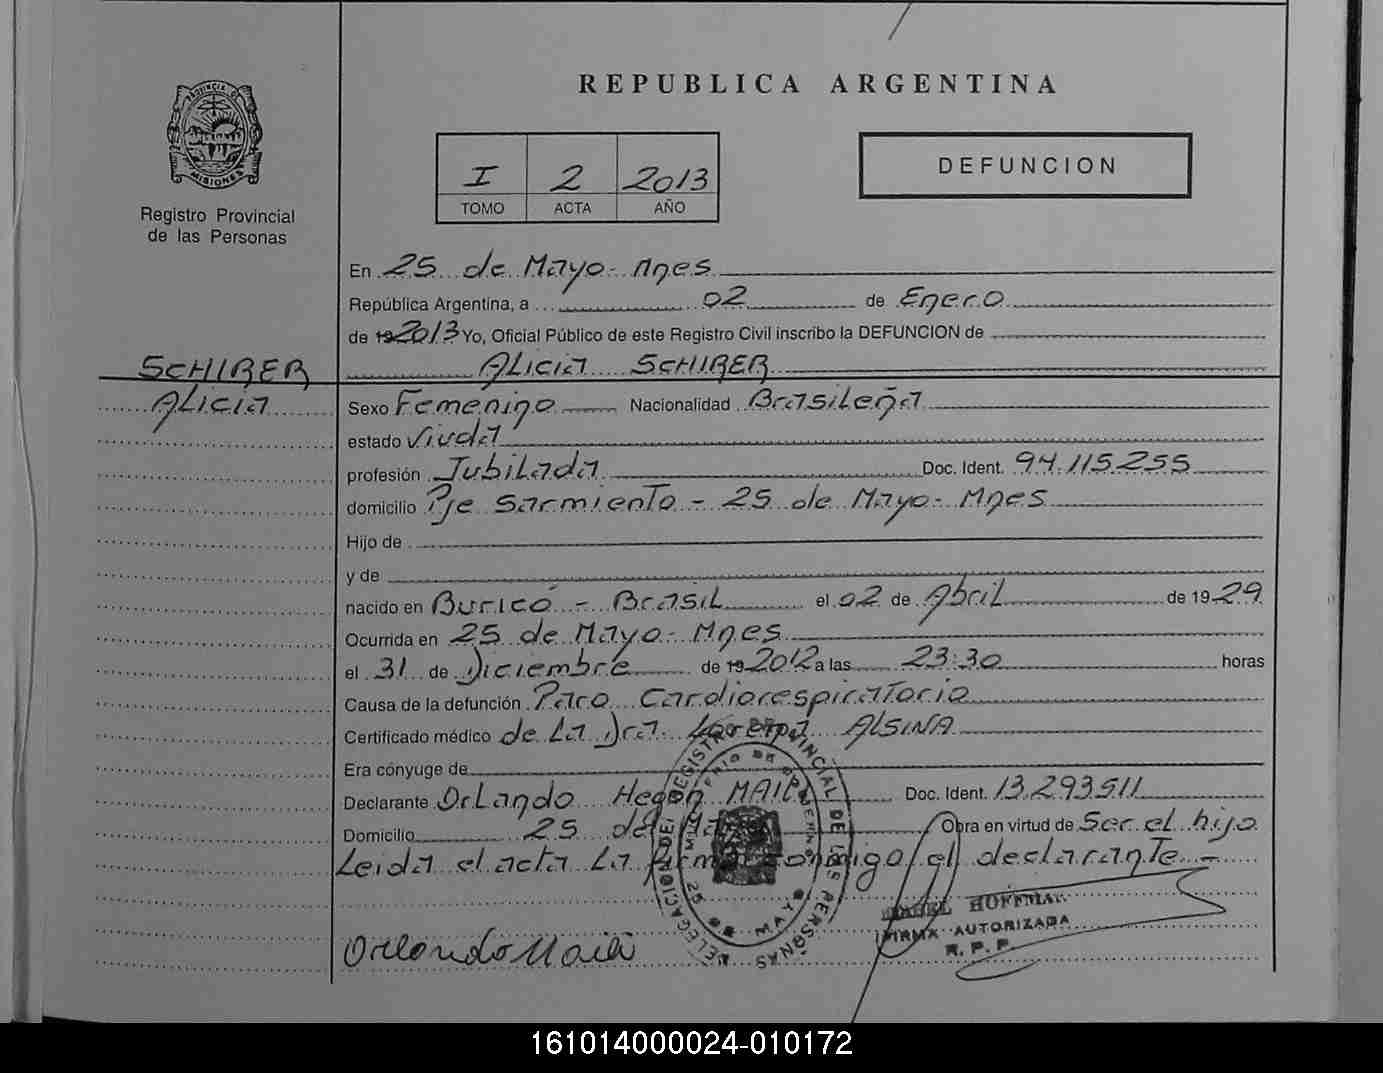 REPUBLICA ARGENTINA
PROVINCIA DE
MISIONES
Registro Provincial
de las Personas
I 2 2013
TOMO ACTA AÑO
DEFUNCION
En 25 de Mayo - Mnes
República Argentina, a 02 de Enero
de 19 2013 Yo, Oficial Público de este Registro Civil inscribo la DEFUNCION de
SCHIRER
Alicia
Alicia SCHIRER
Sexo Femenino Nacionalidad Brasileña
estado Viuda
profesión Jubilada Doc. Ident. 94.115.255
domicilio Pje Sarmiento - 25 de Mayo - Mnes
Hijo de
y de
nacido en Buricó - Brasil el 02 de Abril de 1929
Ocurrida en 25 de Mayo - Mnes
el 31 de Diciembre de 19 2012 a las 23:30 horas
Causa de la defunción Paro Cardiorespiratorio
Certificado médico de La Dra. Lorena ALSINA
Era cónyuge de
Declarante Orlando MAIL Doc. Ident. 13.293.511
Domicilio 25 de Obra en virtud de Ser el hijo
Leida el acta La firma conmigo el declarante. -
DELEGACION DEL REGISTRO PROVINCIAL DE LAS PERSONAS
25 DE MAYO
HOFFMAN
FIRMA AUTORIZADA
R. P. P.
Orlando
161014000024-010172